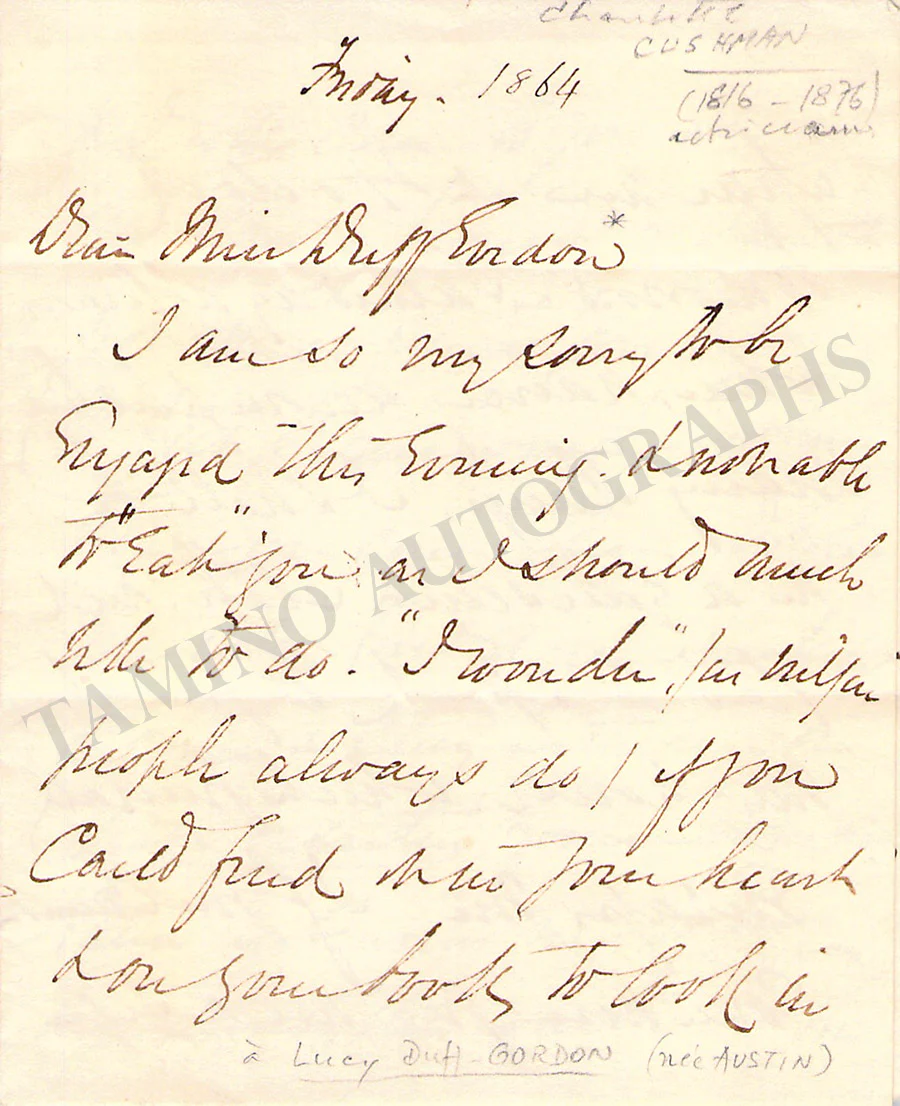 Charlotte
CUSHMAN
(1816 - 1876)
Friday. 1864
Dear Miss Duff Gordon*
I am so very sorry to be
Engaged this Evening. & not able
to "Eat" you as I should much
like to do. "I wonder", (
people always do) if you
Could find it in your heart
& on your books, to look in
à Lucy Duff-GORDON (née AUSTIN)
TAMINO AUTOGRAPHS